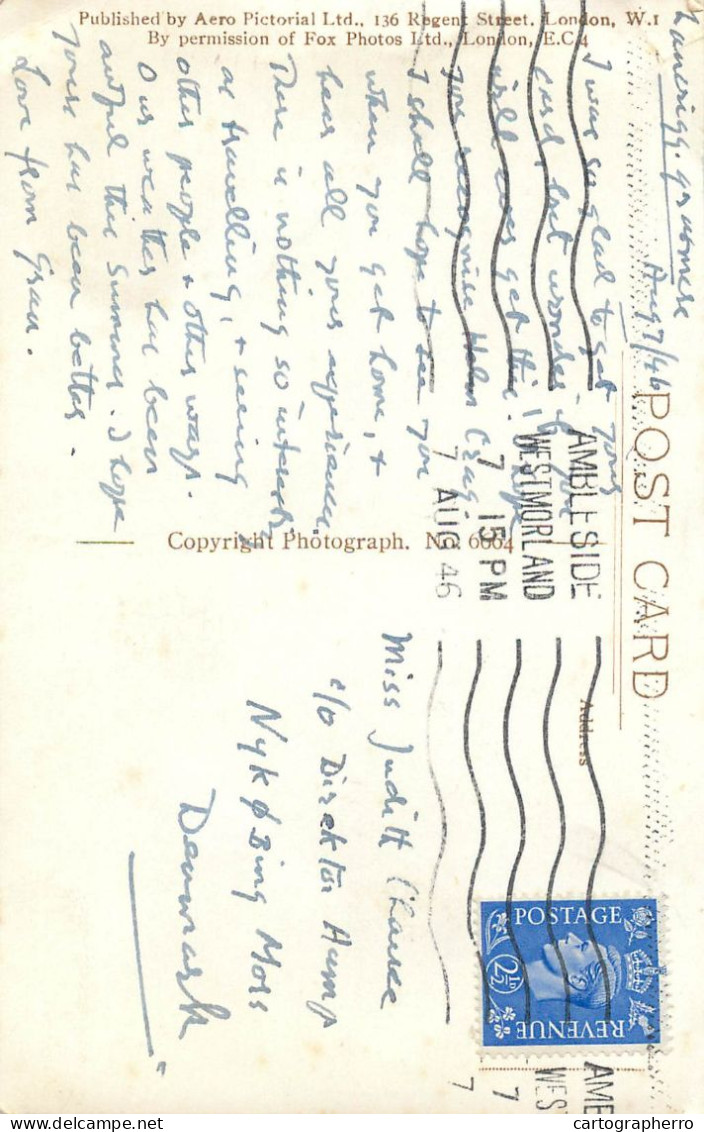 Published by Aero Pictorial Ltd., 136 Regent Street. London, W.1
By permission of Fox Photos Ltd., London, E.C.4
Lancrigg. Grasmere
Aug 7/46
I was so glad to get your
card, but wonder if you
will ever get this. I hope
you recognise Helm Crag.
I shall hope to see you
when you get home, &
hear all your experiences.
There is nothing so interesting
as travelling, & seeing
other people & other ways.
Our weather has been
awful this summer. I hope
yours has been better.
Love from Gran.
POST CARD
Copyright Photograph. No. 6664
Address
AMBLESIDE
WESTMORLAND
7 15 PM
7 AUG 46
Miss Judith Chance
c/o Direktor Hamp
Nykøbing Mors
Denmark
POSTAGE
2½D
REVENUE
AMB
WEST
7
7
cartographerro